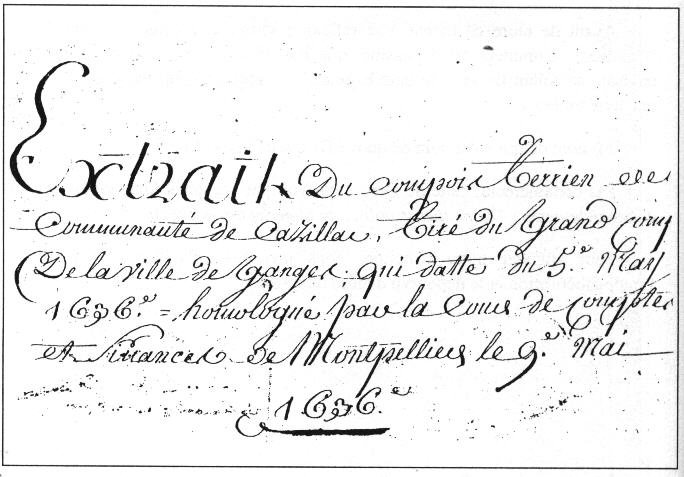 Extrait Du compoix terrien de
Communauté de Cazillac, tiré du Grand comp
De la ville de Ganges qui datte du 5.e May
1636.e = homologué par la Cour de comptes
et finances de Montpellier le 9.e Mai
1636.e